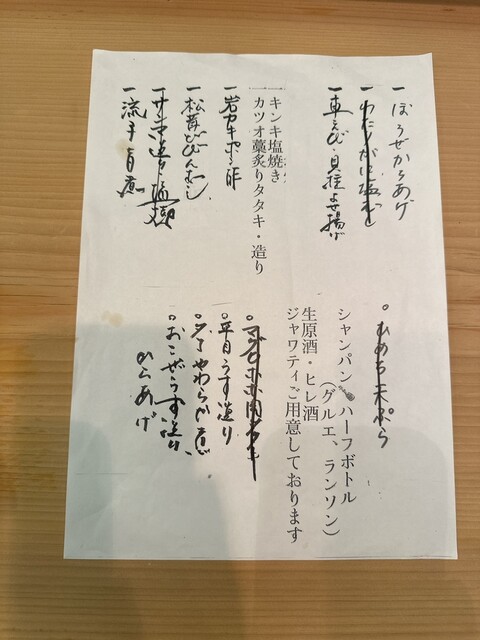 一 ぼうぜからあげ
一 わたりがに塩むし
一 車えび・貝柱よせ揚げ
一 キンキ塩焼き
一 カツオ藁炙りタタキ・造り
一 岩カキポン酢
一 松茸どびんむし
一 サンマ造り・塩焼
一 流子旨煮
○ ひめち天ぷら
シャンパン ハーフボトル
(グルエ、ランソン)
生原酒・ヒレ酒
ジャワティご用意しております
○ マグロホホ肉
○ 平目うす造り
○ タコやわらか煮
○ おこぜうす造り、
からあげ